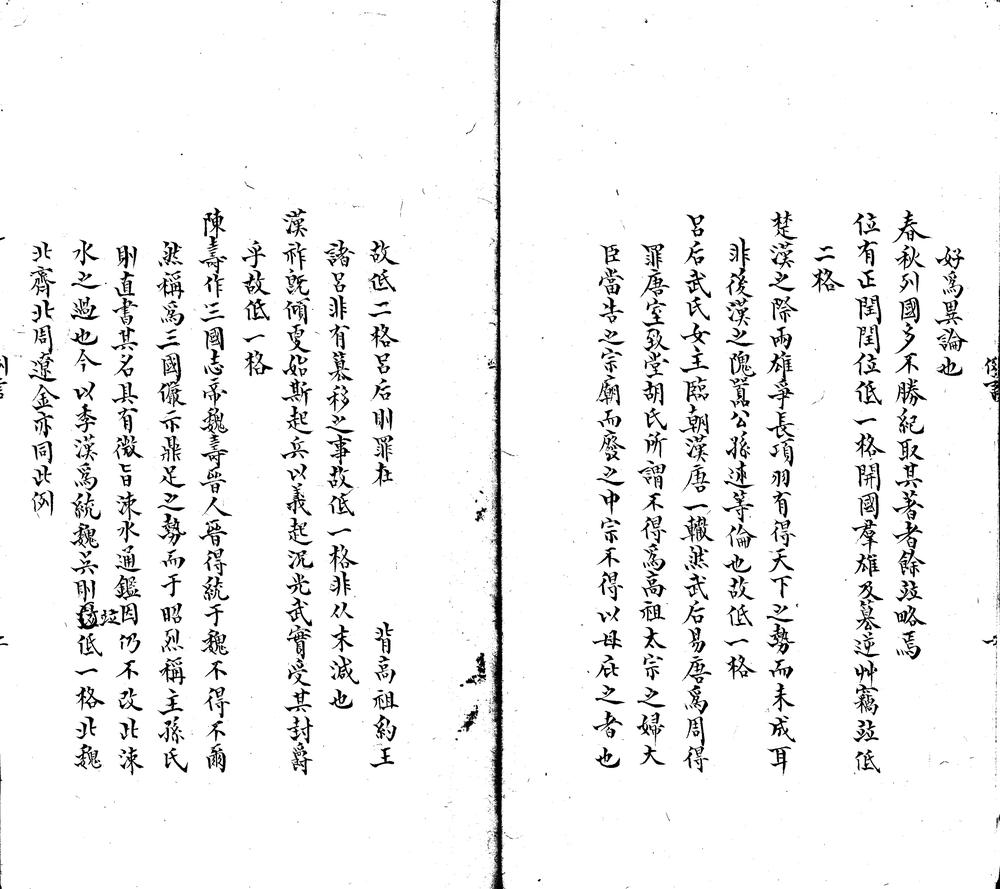 好爲異論也
春秋列國多不勝紀取其著者餘竝略焉
位有正閏閏位低一格開國羣雄及篡逆艸竊竝低
二格
楚漢之際兩雄爭長項羽有得天下之勢而未成耳
非後漢之隗囂公孫述等倫也故低一格
呂后武氏女主臨朝漢唐一轍然武后易唐爲周得
罪唐室致堂胡氏所謂不得爲高祖太宗之婦大
臣當告之宗廟而廢之中宗不得以母庇之者也
故低二格呂后則罪在 背高祖約王
諸呂非有篡移之事故低一格非从末減也
漢祚旣傾更始斯起兵以義起況光武實受其封爵
乎故低一格
陳壽作三國志帝魏壽晉人晉得統于魏不得不爾
然稱爲三國儼示鼎足之勢而于昭烈稱主孫氏
則直書其名具有微旨涑水通鑑因仍不改此涑
水之過也今以季漢爲統魏吳則竝低一格北魏
北齊北周遼金亦同此例